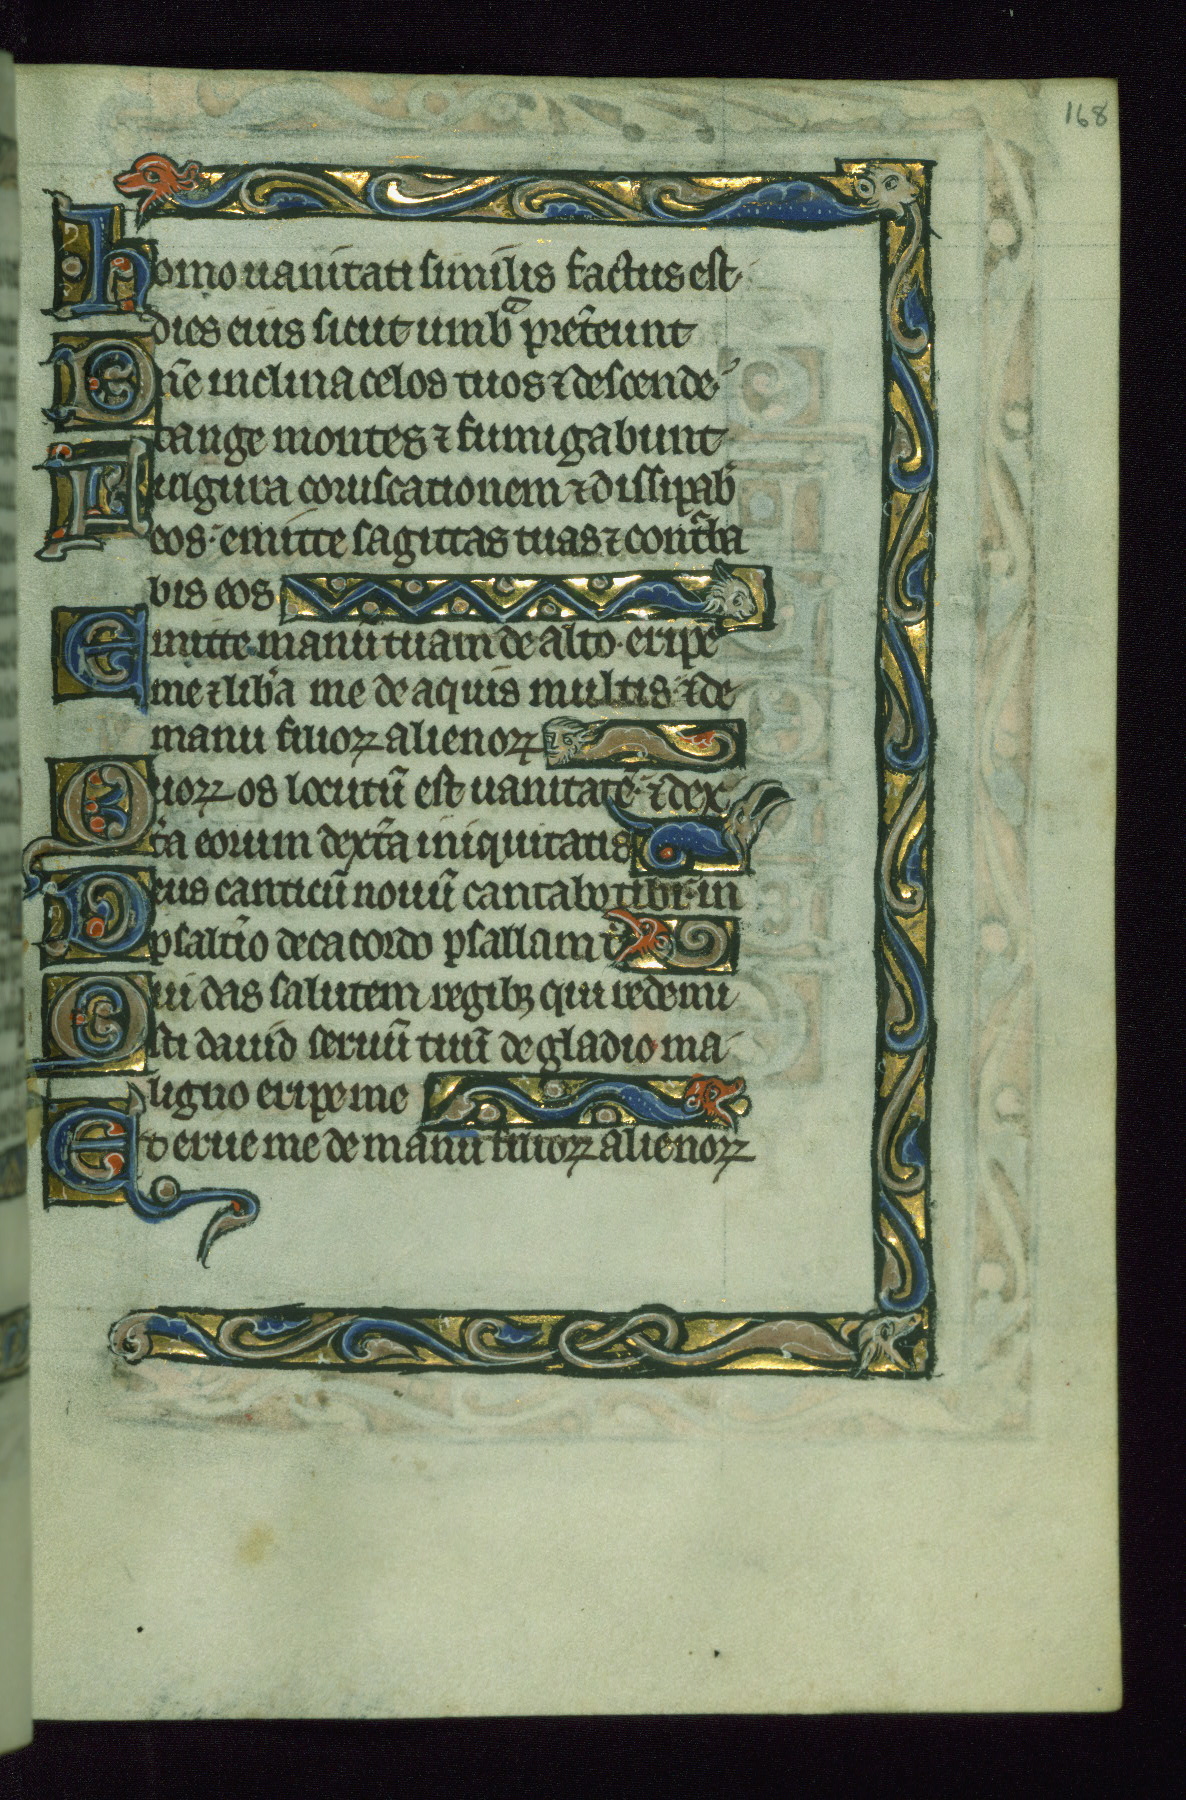 168
homo uanitati similis factus est·
dies eius sicut umbᵃ pret̄eunt
Dn̄e inclina celos tuos ⁊ descende·
tange montes ⁊ fumigabunt
Fulgura coruscationem ⁊ dissipab̄
eos· emitte sagittas tuas ⁊ contᷓba
bis eos
Emitte manū tuam de alto· eripe
me ⁊ lib̄a me de aquis multis· ⁊ de
manu filioꝝ alienoꝝ
Quoꝝ os locutū est uanitatē· ⁊ dex
t̄a eorum dext̄a iniquitatis
Deus canticū nouū cantabo tibi· in
psalt̄io decacordo psallam t
Qui das salutem regibꝫ qui redemi
sti dauid seruū tuū de gladio ma
ligno eripe me
Et erue me de manu filioꝝ alienoꝝ